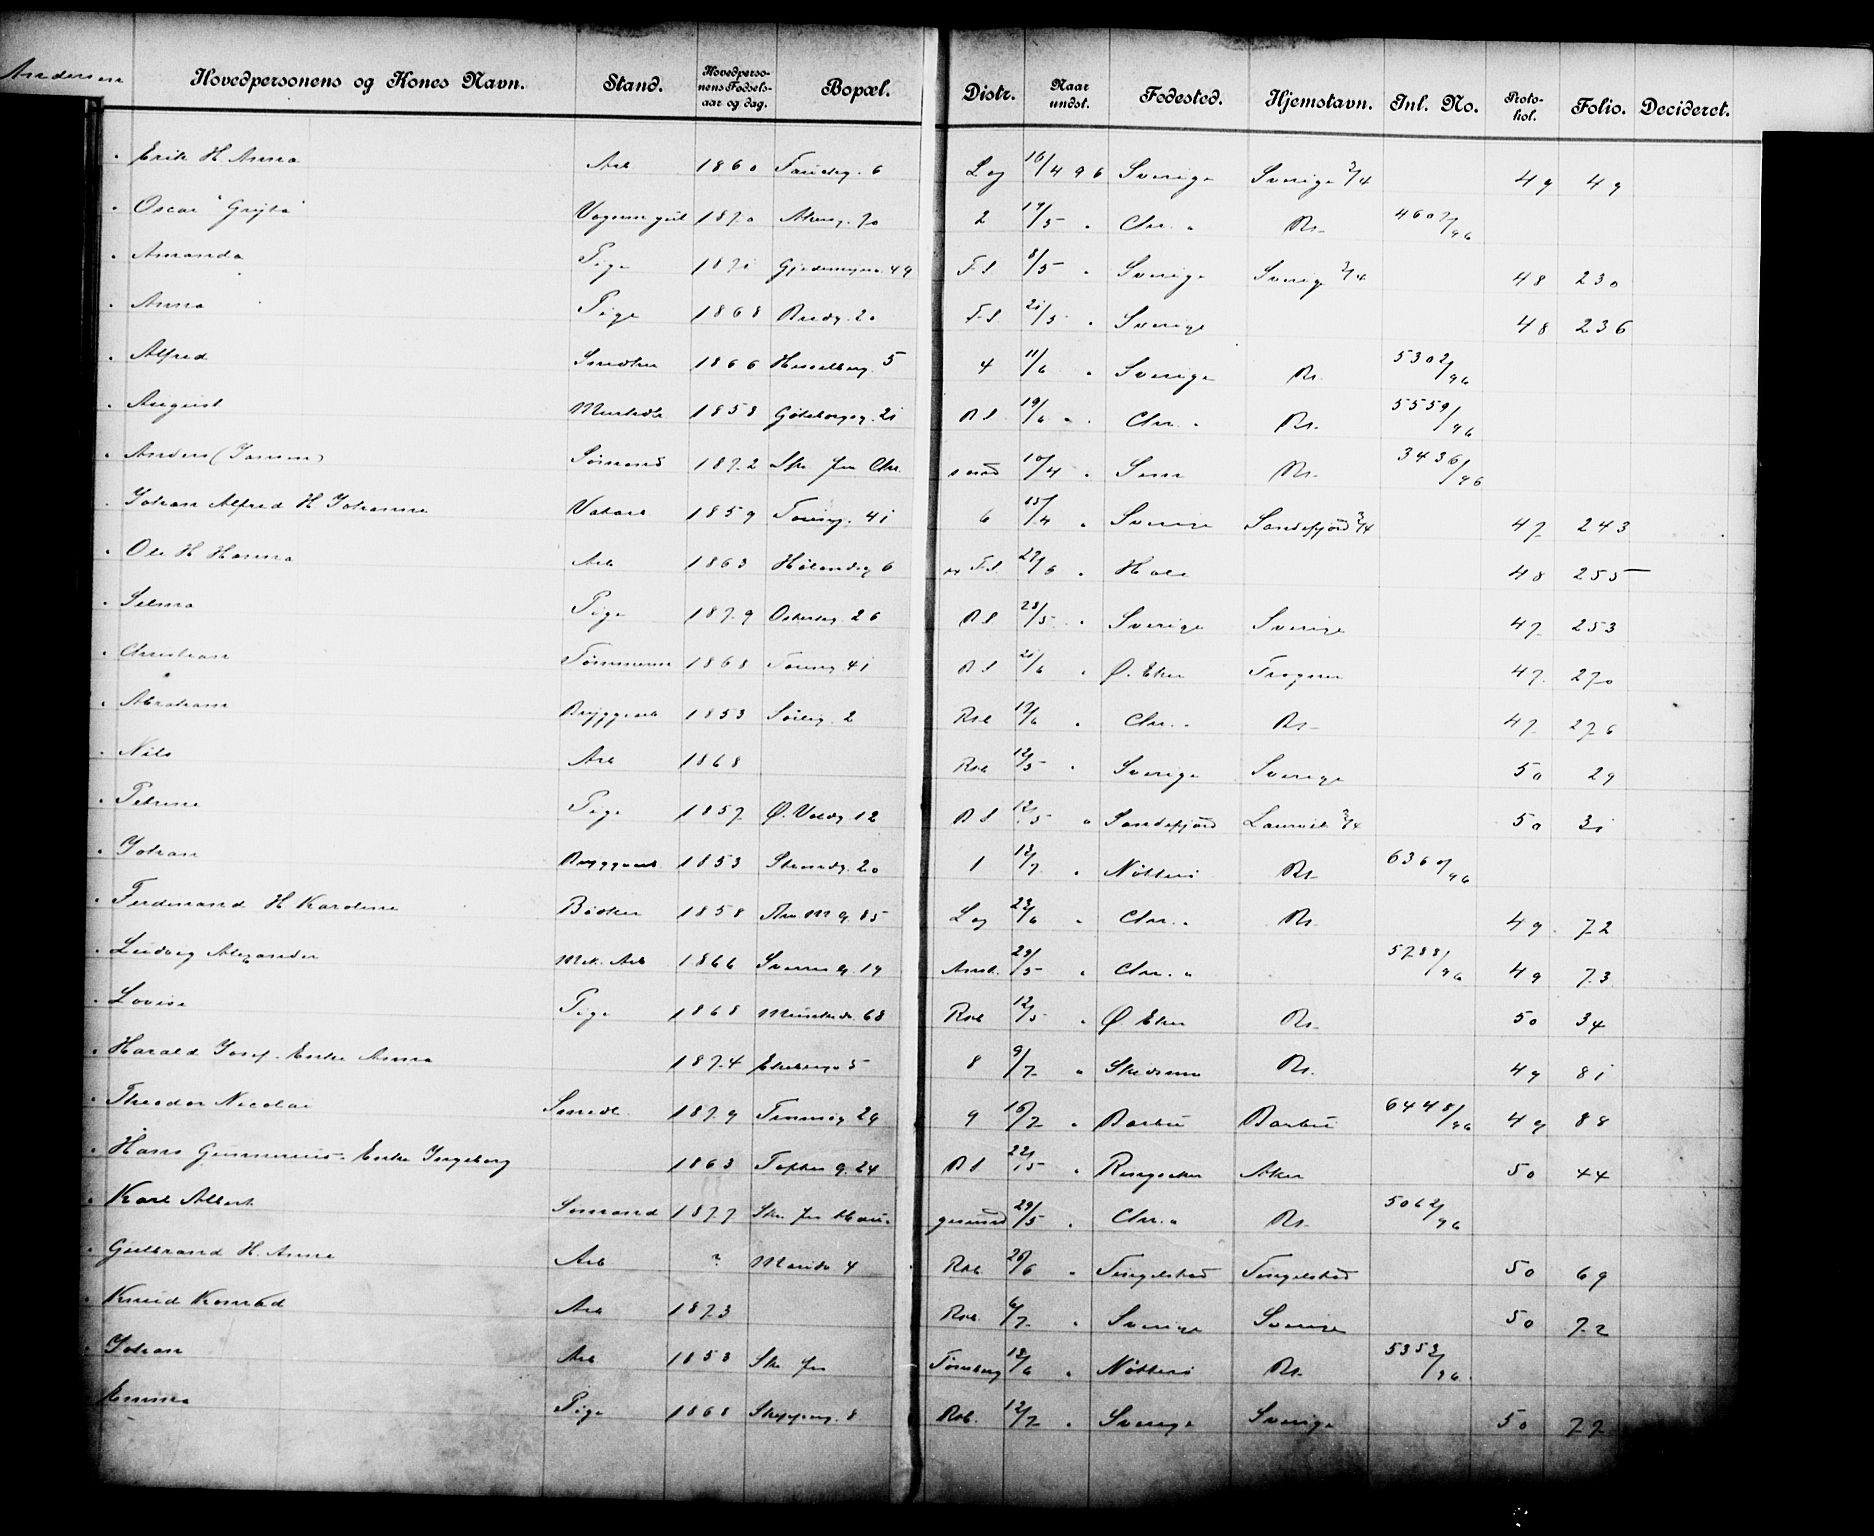 Andersen Hovedpersonens og Kones Navn. Stand. Hovedpersonens Fødselsaar og dag. Bopæl. Distr. Naar undst. Fødested. Hjemstavn. Inl. No. Protokol. Folio. Decideret.
" Erik H Anna Arb 1860 6 Lag 16/4 96 Sverige Sverige 3/4 49 49
" Oscar "Grijta" 1870 Akersg. 70 2 19/5 " Chr. " Rr. 4607/96
" Amanda Pige 1871 49 F.l. 8/5 " Sverige Sverige 3/4 48 230
" Anna Pige 1868 Bredg. 20 F.l. 21/5 " Sverige 48 236
" Alfred Snedker 1866 Hesselberg. 5 4 11/6 " Sverige Rr. 5302/96
" August 1858 Gøteborgg. 21 B l 19/6 " Chr. " Rr. 5559/96
" Anders (Jansen) Sømand 1872 Skr. fra Chr. sund 10/4 " Sem Rr. 3436/96
" Johan Alfred H Johanne 1859 41 6 15/4 " Sverige Sandefjord 3/4 47 243
" Ole H Hanna Arb 1863 Hølandsg 6 F.l. 27/5 " Hole 48 255
" Selma Pige 1879 26 B l 28/5 " Sverige Sverige 47 253
" Christian Tømmerm 1868 41 B l 21/6 " Ø. Eker Trogner 47 270
" Abraham Bryggearb 1853 Søileg. 2 Rob 17/6 " Chr. " Rr. 47 276
" Nils Arb 1868 Rob 12/5 " Sverige Sverige 50 29
" Petrine Pige 1857 Ø. Voldg 12 B l 12/5 " Sandefjord Laurvik 3/4 50 31
" Johan Bryggearb 1853 Strandg. 20 1 13/7 " Nøtterø Rr. 6360/96
" Ferdinand H Karoline Bødker 1858 Thv M g. 85 Lag 23/6 " Chr. " Rr. 49 72
" Ludvig Alexander Mek. Arb 1866 Sverres g. 19 29/5 " Chr. " 5788/96 49 73
" Lovise Pige 1868 68 Rob 12/5 " Ø Eker Rr. 50 34
" Harald Josef. Enke Anna 1874 Ekebergv 5 8 9/7 " Skedsmo Rr. 49 81
" Theodor Nicolai Smedl. 1879 29 9 16/7 " Barbu Barbu 6448/96 49 88
" Hans Gunnerius. Enke Ingeborg 1863 Tofte g. 24 B l 22/5 " Ringsaker Aker 50 44
" Karl Albert Sømand 1877 Skr. fra Hau- gesund 29/5 " Chr. " Rr. 5062/96
" Gulbrand H. Anne Arb ? Maridv 4 Rob. 26/6 " Tingelstad Tingelstad 50 69
" Knud Konrad Arb 1873 Rob. 6/7 " Sverige Sverige 50 72
" Johan Arb 1853 Skr. fra Tønsberg 12/6 " Nøtterø Rr. 5353/96
Emma Pige 1868 Skippeg. 8 Rob. 12/7 " Sverige Sverige 50 77